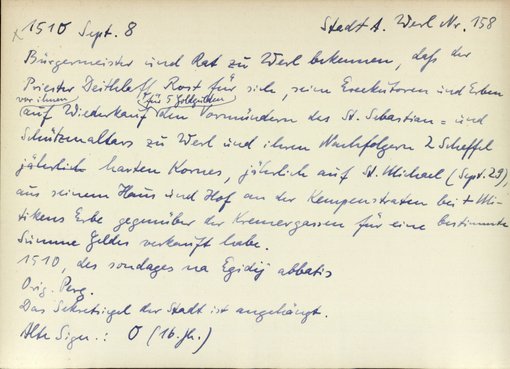 x 1510 Sept. 8 Stadt A. Werl Nr. 158
Bürgermeister und Rat zu Werl bekennen, daß der
Priester Deithleff Rost für sich, seine Exekutoren und Erben
vor ihnen für 5 Goldgulden
auf Wiederkauf den Vormündern des St. Sebastian- und
Schützenaltars zu Werl und ihren Nachfolgern 2 Scheffel
jährlich harten Kornes, jährlich auf St. Michael (Sept. 29),
aus seinem Haus und Hof an der Kempenstraten bei + Mi-
tikens Erbe gegenüber der Kremergassen für eine bestimmte
Summe Geldes verkauft habe.
1510, des sondages na Egidij abbatis
Orig. Perg.
Das Sekretsiegel der Stadt ist angehängt.
Alte Sign.: O (16. Jh.)